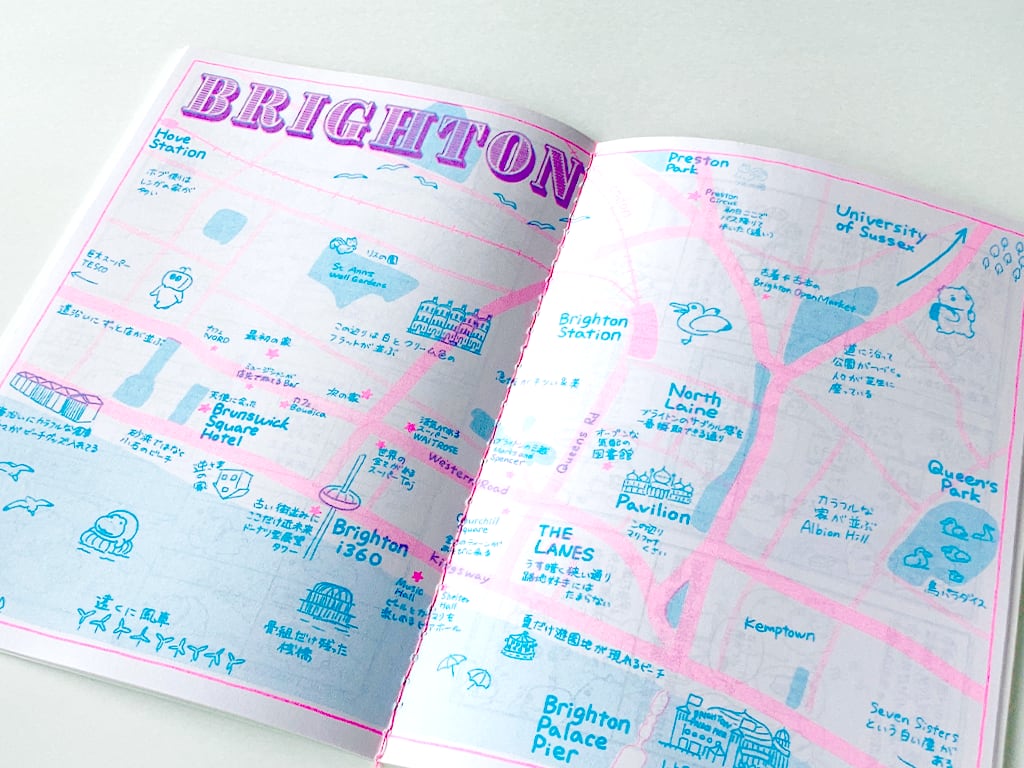 BRIGHTON
Hove
Station
ホブ側は
レンガの家が
多い
巨大スーパー
TESCO
リスの園
St. Ann's
Well Gardens
この辺りは白とクリーム色の
フラットが並ぶ
道沿いにずっと店が並ぶ
カフェ
NORD
最初の家
ミュージシャンが
店先で
Bar
カフェ
Boudica
次の家
天使に会った
Brunswick
Square
Hotel
砂浜ではなく
小石のビーチ
逆さまの家
古い街並みに
ここだけ近未来
ドーナツ型展望
タワー
Brighton
i360
世界の
全てがある
スーパー Taj
スーパー
WAITROSE
Western Road
Kingsway
Music
Hall
遠くに風車
骨組だけ残った
桟橋
Preston
Park
Preston
Circus
初日ここで
バス降りて
歩いた(遠い)
University
of Sussex
古着や古本の
Brighton Open Market
Brighton
Station
道に沿って
公園がつづく。
人々が芝生に
座っている
North
Laine
ブライトンのサブカル度を
一番満喫できる通り
Queens Rd
オープンな
図書館
Pavilion
この辺り
THE
LANES
うす暗く狭い通り
路地好きには
たまらない
カラフルな
家が並ぶ
Albion Hill
Queen's
Park
鳥パラダイス
Kemptown
夏だけ遊園地が現れるビーチ
Brighton
Palace
Pier
Seven Sisters
という白い崖が
ある